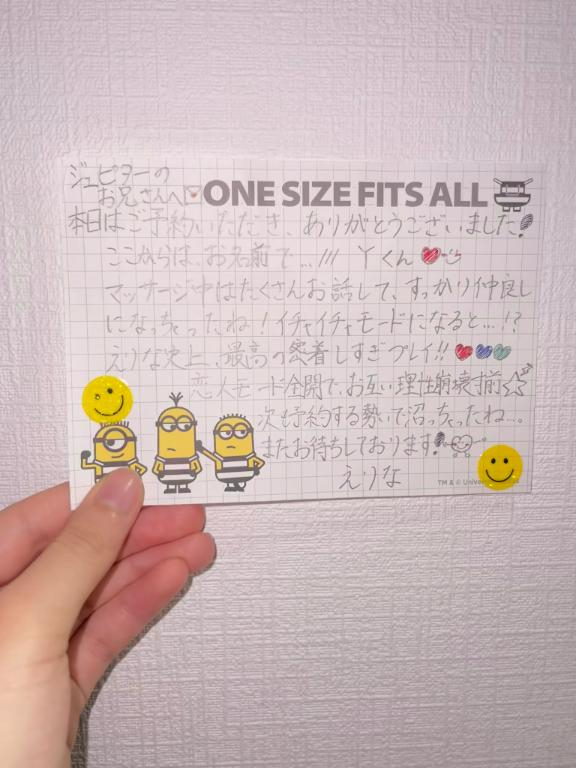 ジュピターの
お兄さんへ
ONE SIZE FITS ALL
本日はご予約いただき、ありがとうございました!
ここからは、お名前で…/// Yくん
マッサージ中はたくさんお話して、すっかり仲良し
になっちゃったね!イチャイチャモードになると…!?
えりな史上最高の密着しすぎプレイ!!
恋人モード全開で、お互い理性崩壊寸前
次も予約する勢いで沼っちゃったね…
またお待ちしております!
えりな
TM & © Univer